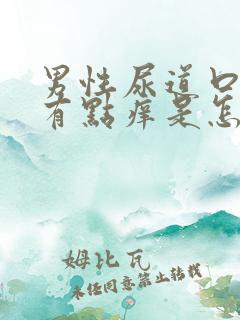 男性尿道口
有點痒是怎
姆比瓦
未经同意禁止转载